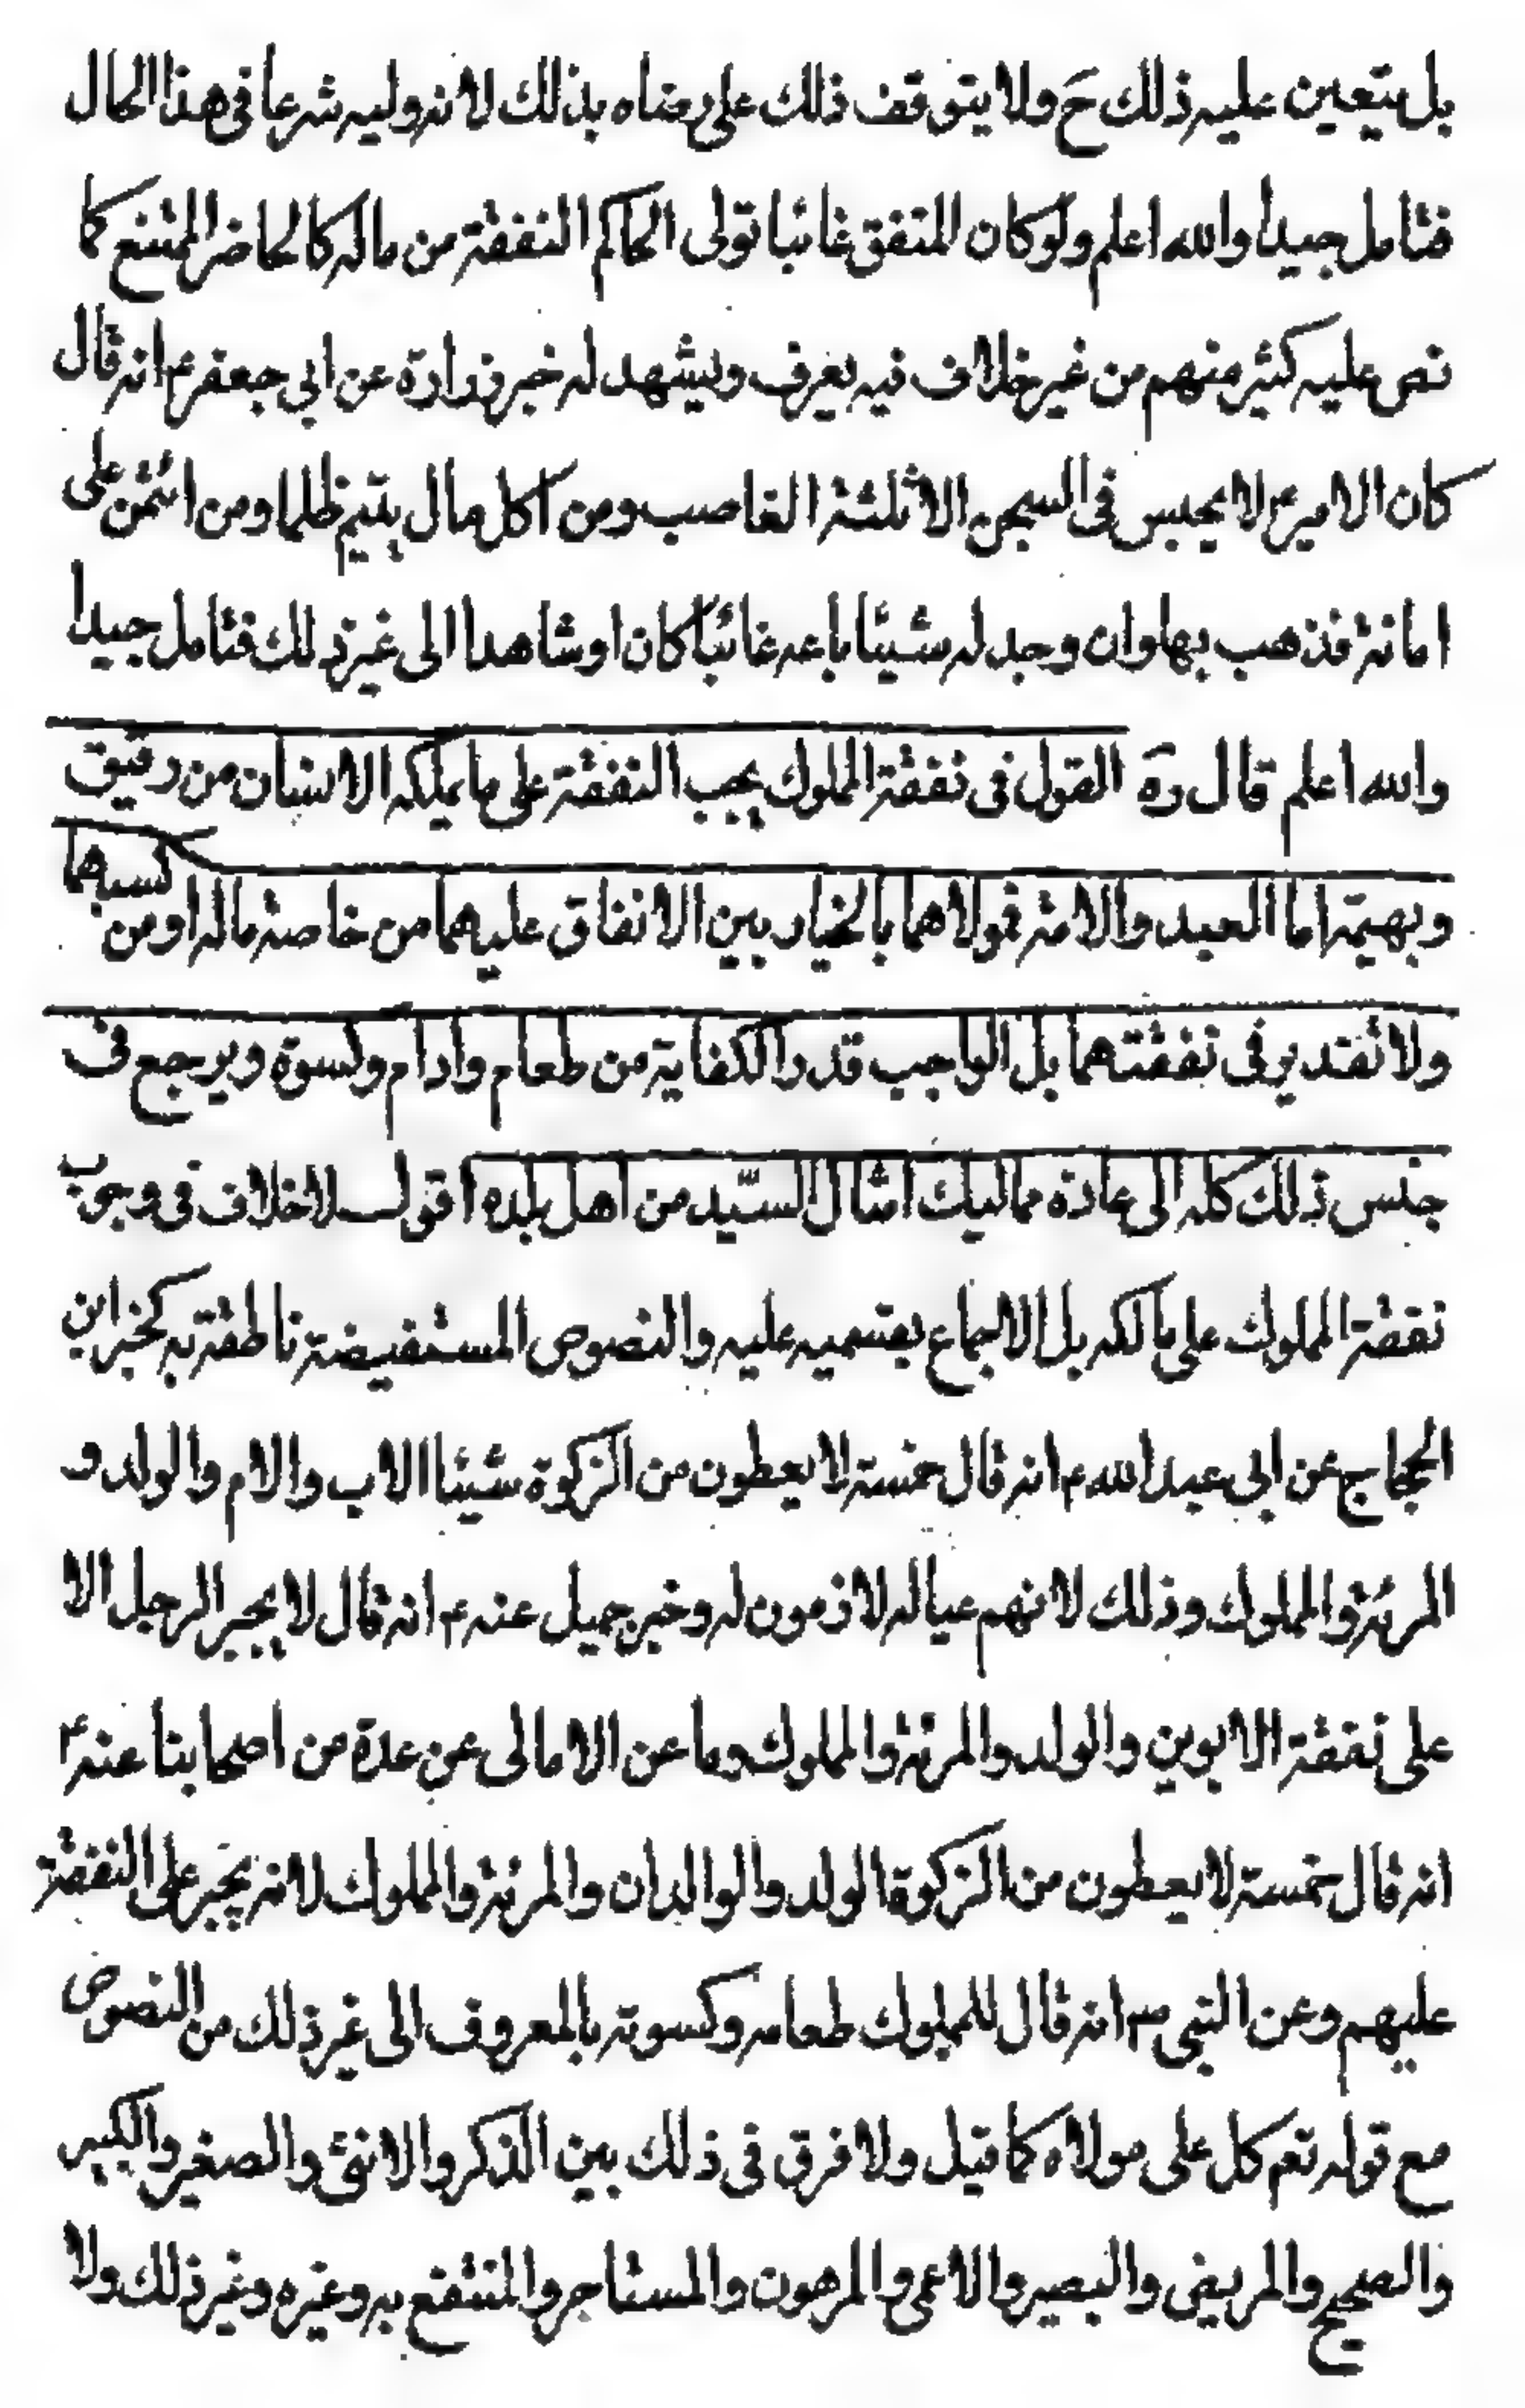 بل يتعين عليه ذلك ح ولا يتوقف ذلك على رضاه بذلك لانه وليه شرعا فى هذا الحال
فتامل جيدا والله اعلم ولو كان المنفق غائبا تولى الحاكم النفقة من ماله كالحاضر الممتنع كما
نص عليه كثير منهم من غير خلاف فيه يعرف ويشهد له خبر زرارة عن ابي جعفر ع انه قال
كان الامير ع لا يحبس فى السجن الا ثلثة الغاصب ومن اكل مال يتيم ظلما ومن ائتمن على
امانة فذهب بها وان وجد له شيئا باعه غائبا كان او شاهدا الى غير ذلك فتامل جيدا
والله اعلم قال ره القول فى نفقة المملوك يجب النفقة على ما يملكه الانسان من رقيق
وبهيمة اما العبد والامة فمولاهما بالخيار بين الانفاق عليهما من خاصة ماله او من كسبهما
ولا تقدير فى نفقتهما بل الواجب قدر الكفاية من طعام وادام وكسوة ويرجع فى
جنس ذلك كله الى عادة مماليك امثال السيّد من اهل بلده اقول لا خلاف فى وجوب
نفقة المملوك على مالكه بل الاجماع بقسميه عليه والنصوص المستفيضة ناطقة به كخبر ابن
الحجاج عن ابي عبد الله ع انه قال خمسة لا يعطون من الزكوة شيئا الاب والام والولد و
المرئة والمملوك وذلك لانهم عياله لازمون له وخبر جميل عنه ع انه قال لا يجبر الرجل الا
على نفقة الابوين والولد والمرئة والمملوك وما عن الامالى عن عدة من اصحابنا عنه ع
انه قال خمسة لا يعطون من الزكوة الولد والوالدان والمرئة والمملوك لانه يجبر على النفقة
عليهم وعن النبى ص انه قال للمملوك طعامه وكسوته بالمعروف الى غير ذلك من النصوص
مع قوله تعم كل على مولاه كما قيل ولا فرق فى ذلك بين الذكر والانثى والصغير والكبير
والصحيح والمريض والبصير والاعمى والمرهون والمستاجر والمنتفع به وغيره وغير ذلك ولا